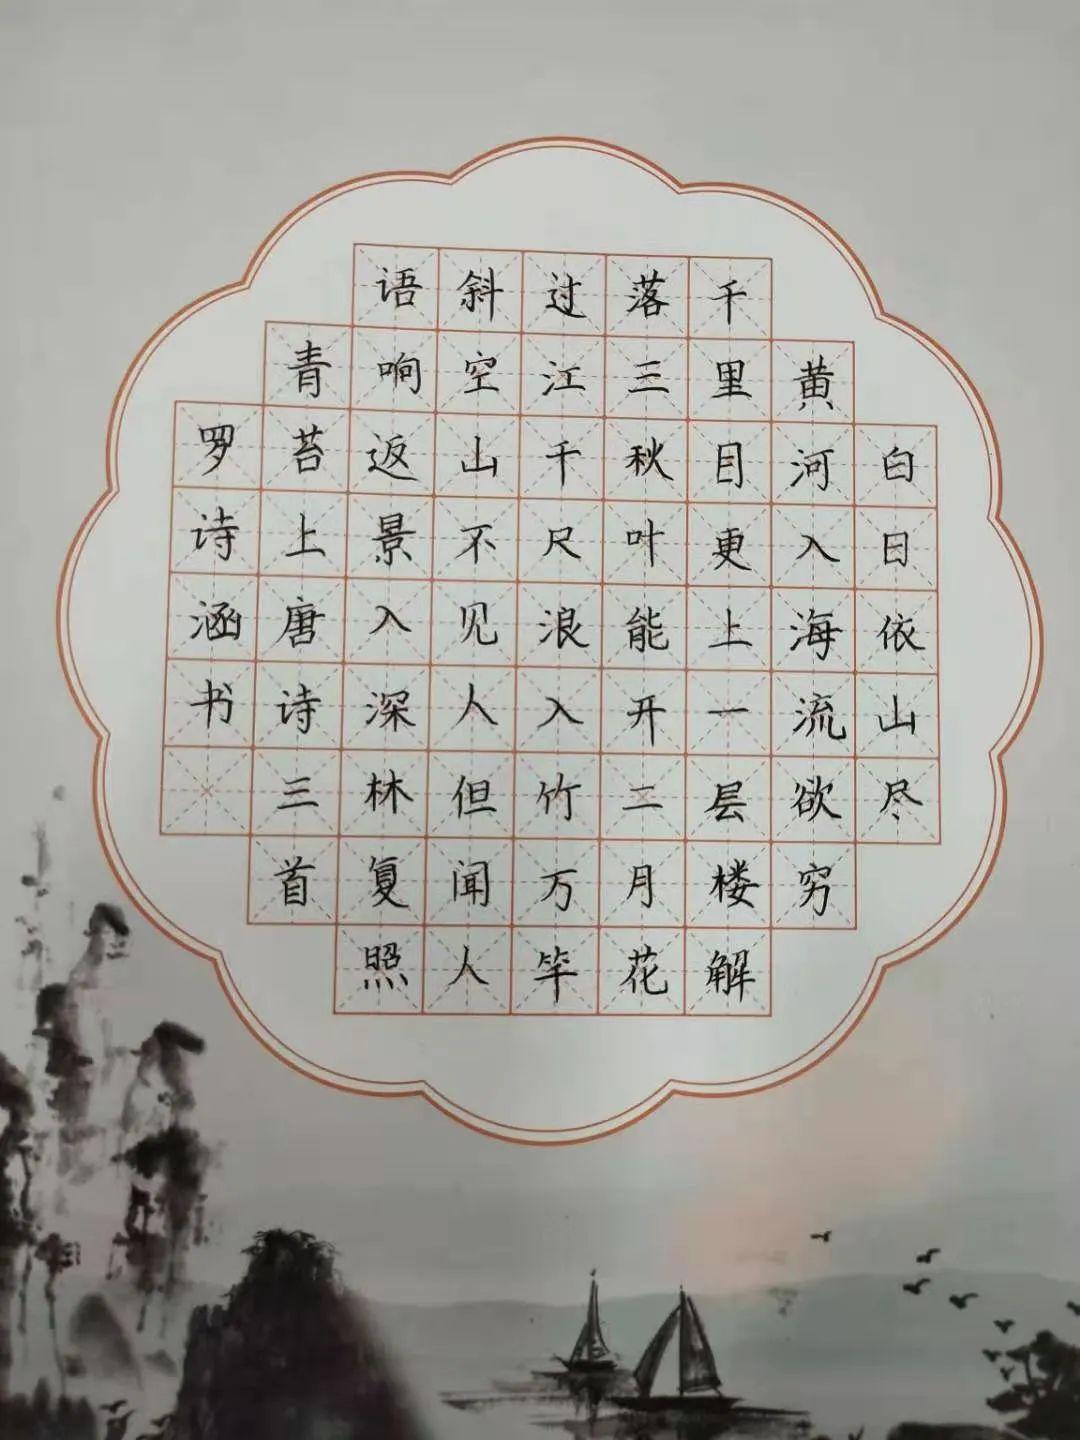 白日依山尽
黄河入海流欲穷
千里目更上一层楼解
落三秋叶能开二月花
过江千尺浪入竹万竿
斜空山不见人但闻人
语响返景入深林复照
青苔上唐诗三首
罗诗涵书